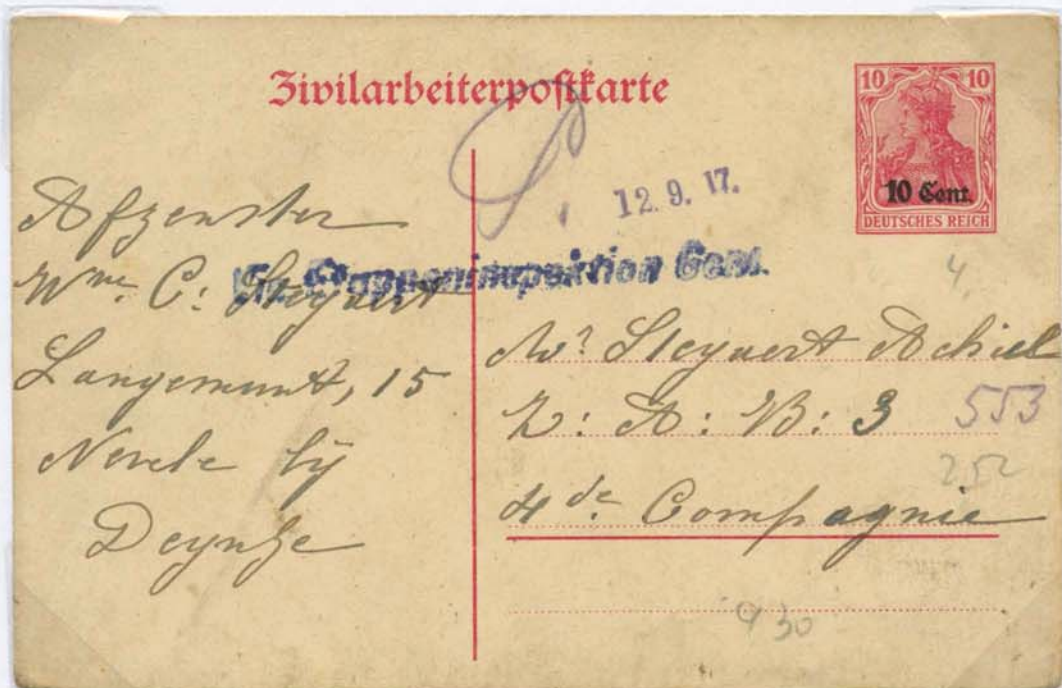 Zivilarbeiterpostkarte
10 10
10 Cent.
DEUTSCHES REICH
12. 9. 17.
Etappeninspektion Gent.
Afzenster
Wwe. C: Steyaert
Langemunt, 15
Nevele bij
Deynze
Mr. Steyaert Achiel
Z: A: B: 3
4de Compagnie
553
252
4
9 30